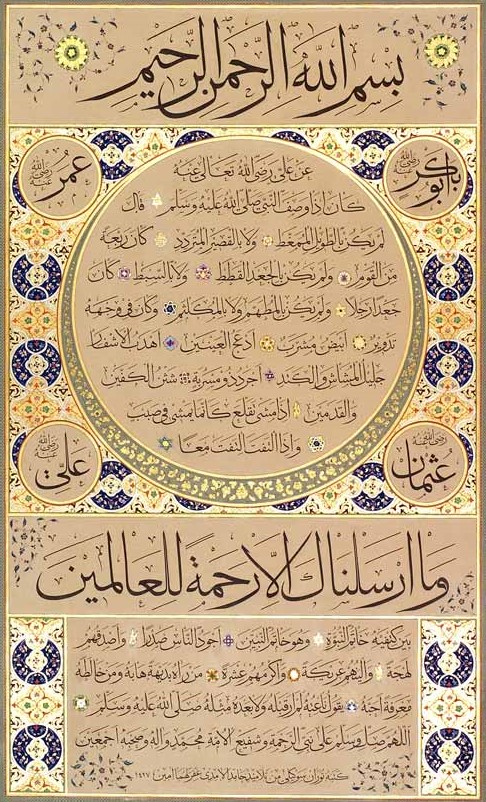 بسم الله الرحمن الرحيم
ابوبكر رضي الله عنه
عمر رضي الله عنه
عن علي رضي الله تعالى عنه
كان اذا وصف النبي صلى الله عليه وسلم قال
لم يكن بالطويل الممغط ولا بالقصير المتردد وكان ربعة
من القوم ولم يكن بالجعد القطط ولا بالسبط كان
جعدا رجلا ولم يكن بالمطهم ولا بالمكلثم وكان في وجهه
تدوير ابيض مشرب ادعج العينين اهدب الاشفار
جليل المشاش والكتد اجرد ذو مسربة شثن الكفين
والقدمين اذا مشى تقلع كانما يمشي في صبب
واذا التفت التفت معا
عثمان رضي الله عنه
علي رضي الله عنه
وما ارسلناك الا رحمة للعالمين
بين كتفيه خاتم النبوة وهو خاتم النبيين اجود الناس صدرا واصدقهم
لهجة والينهم عريكة واكرمهم عشرة من رآه بديهة هابه ومن خالطه
معرفة احبه يقول ناعته لم ار قبله ولا بعده مثله صلى الله عليه وسلم
اللهم صل وسلم على نبي الرحمة وشفيع الامة محمد وآله وصحبه اجمعين
كتبه توران سوكلي من تلاميذ حامد الآمدي غفر لهما آمين